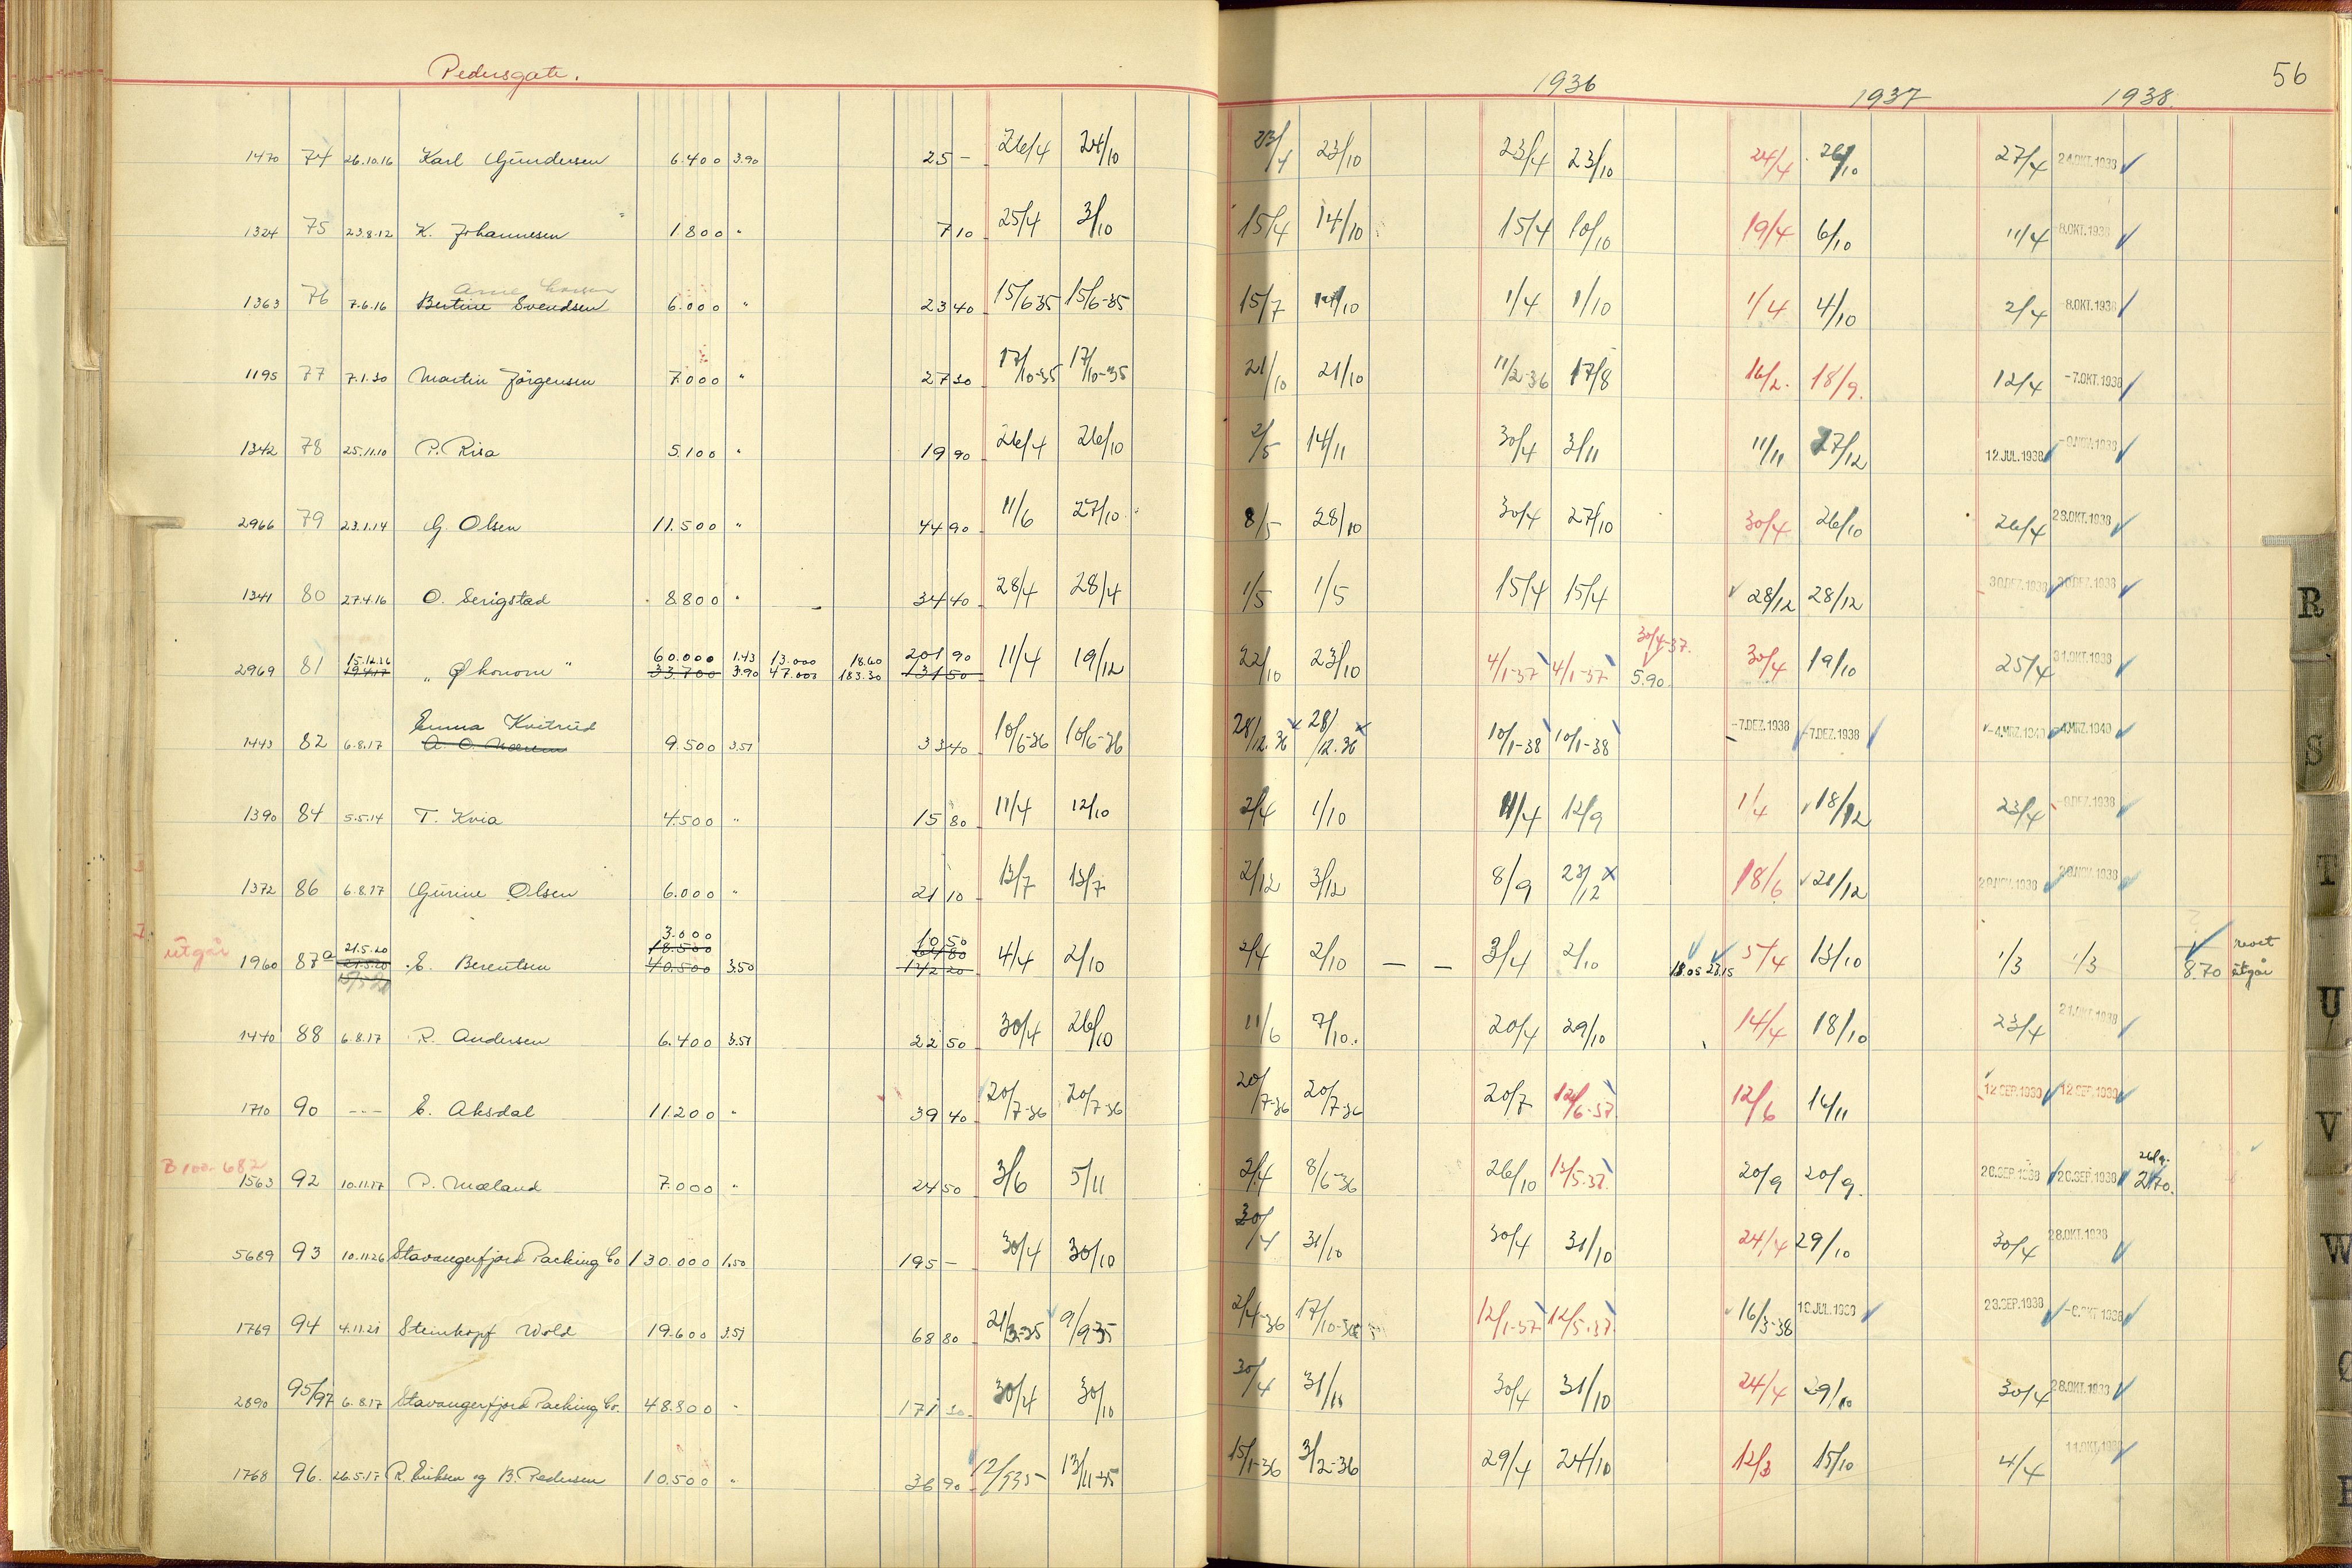 Pedersgate. 1936 1937 1938. 56
1470 74 26.10.16 Karl Gundersen 6.400 3.90 25 – 26/4 24/10 23/4 23/10 23/4 23/10 24/4 26/10 27/4 24.OKT.1938
1324 75 23.8.12 K. Johannesen 1.800 " 7 10 25/4 3/10 15/4 14/10 15/4 10/10 19/4 6/10 11/4 -8.OKT.1938
Arne
1363 76 7.6.16 Bertine Svendsen 6.000 " 23 40 15/6-35 15/6-35 15/7 14/10 1/4 1/10 1/4 4/10 2/4 -8.OKT.1938
1195 77 7.1.30 Martin Jörgensen 7.000 " 27 30 17/10-35 17/10-35 21/10 21/10 11/2-36 17/8 16/2. 18/9. 12/4 -7.OKT.1938
1342 78 25.11.10 P. Risa 5.100 " 19 90 26/4 26/10 2/5 14/11 30/4 3/11 11/11 27/12 12.JUL.1938 -9.NOV.1938
2966 79 23.1.14 G. Olsen 11.500 " 44 90 11/6 27/10 8/5 28/10 30/4 27/10 30/4 26/10 26/4 28.OKT.1938
1341 80 27.4.16 O. Serigstad 8.800 " 34 40 28/4 28/4 1/5 1/5 15/4 15/4 28/12 28/12 30.DEZ.1938 30.DEZ.1938
30/4-37.
15.12.36 60.000 1.43 13.000 18.60 201 90
2969 81 19.4.17 " Økonom " 33.700 3.90 47.000 183.30 131 50 11/4 19/12 22/10 23/10 4/1-37 4/1-37 5.90 30/4 19/10 25/4 31.OKT.1938
Emma Kvitrud
1443 82 6.8.17 A. O. 9.500 3.51 33 40 10/6-36 10/6-36 28/12.36 28/12.36 10/1-38 10/1-38 -7.DEZ.1938 -7.DEZ.1938 -4.MRZ.1940 -4.MRZ.1940
1390 84 5.5.14 T. Kvia 4.500 " 15 80 11/4 12/10 2/4 1/10 11/4 12/9 1/4 18/12 23/4 -9.DEZ.1938
1372 86 6.8.17 Gurine Olsen 6.000 " 21 10 13/7 13/7 2/12 3/12 8/9 23/12 18/6 21/12 29.NOV.1938 29.NOV.1938
3.000 10 50
utgår 21.5.20 18.500 64 80 revet
1960 87a 21.5.20 E. Berentsen 40.500 3.50 142 20 4/4 2/10 2/4 2/10 – – 3/4 2/10 18.05 23.15 5/4 13/10 1/3 1/3 8.70 utgår
1440 88 6.8.17 R. Andersen 6.400 3.51 22 50 30/4 26/10 11/6 7/10. 20/4 29/10 14/4 18/10 23/4
1710 90 --- E. Aksdal 11.200 " 39 40 20/7-36 20/7-36 20/7-36 20/7-36 20/7 12/6-37. 12/6 16/11 12.SEP.1939 12.SEP.1939
B 682
1563 92 10.11.17 P. Mæland 7.000 " 24 50 3/6 5/11 2/4 8/6-36 26/10 13/5.37. 20/9 20/9. 20.SEP.1938 20.SEP.1938
5689 93 10.11.26 Stavangerfjord Packing Co 130.000 1.50 195 – 30/4 30/10 30/4 31/10 30/4 31/10 24/4 29/10 30/4 28.OKT.1938
1769 94 4.11.21 Steinkopf Wold 19.600 3.51 68 80 21/3-35 9/9-35 2/4-36 17/10-36 12/1-37 12/5.37. 16/3-38 23.SEP.1938
2890 95/97 6.8.17 Stavangerfjord Packing Co. 48.800 " 171 30 30/4 30/10 30/4 31/10 30/4 31/10 24/4 29/10 30/4 28.OKT.1938
1768 96. 26.5.17 R. Eriksen og B. Pedersen 10.500 " 36 90 12/535 13/11-35 15/1-36 3/2-36 29/4 24/10 12/3 15/10 4/4
R
S
T
U
V
W